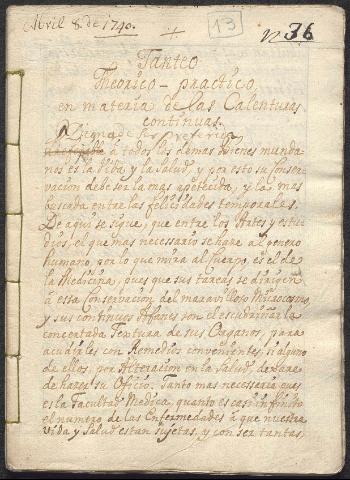 Abril 8. de 1740.
13
n. 36
Tanteo
Theorico-practico,
en materia de las Calenturas
continuas.
Digna de ser preferida
à todos los demas Bienes munda-
nos es la Vida y la Salud, y por esto su conser-
vacion debe ser la mas apetecida, y la mas
buscada entre las felicidades temporales.
De aqui se sigue, que entre los Artes y estu-
dios, el que mas necessario se haze al genero
humano, por lo que mira al cuerpo, es el de
la Medicina, pues que sus tareas se dirigen
à essa Conservacion del maravilloso Microcosmo,
y sus continuos Afanes son el escudriñar la
concertada Textura de sus Organos, para
acudirles con Remedios convenientes, si alguno
de ellos, por Alteracion en la Salud, dexare
de hazer su Oficio. Tanto mas necessaria pues
es la Facultad Medica, quanto es casi infinito
el numero de las Enfermedades à que nuestra
Vida y Salud estan sujetas, y con ser tantas,